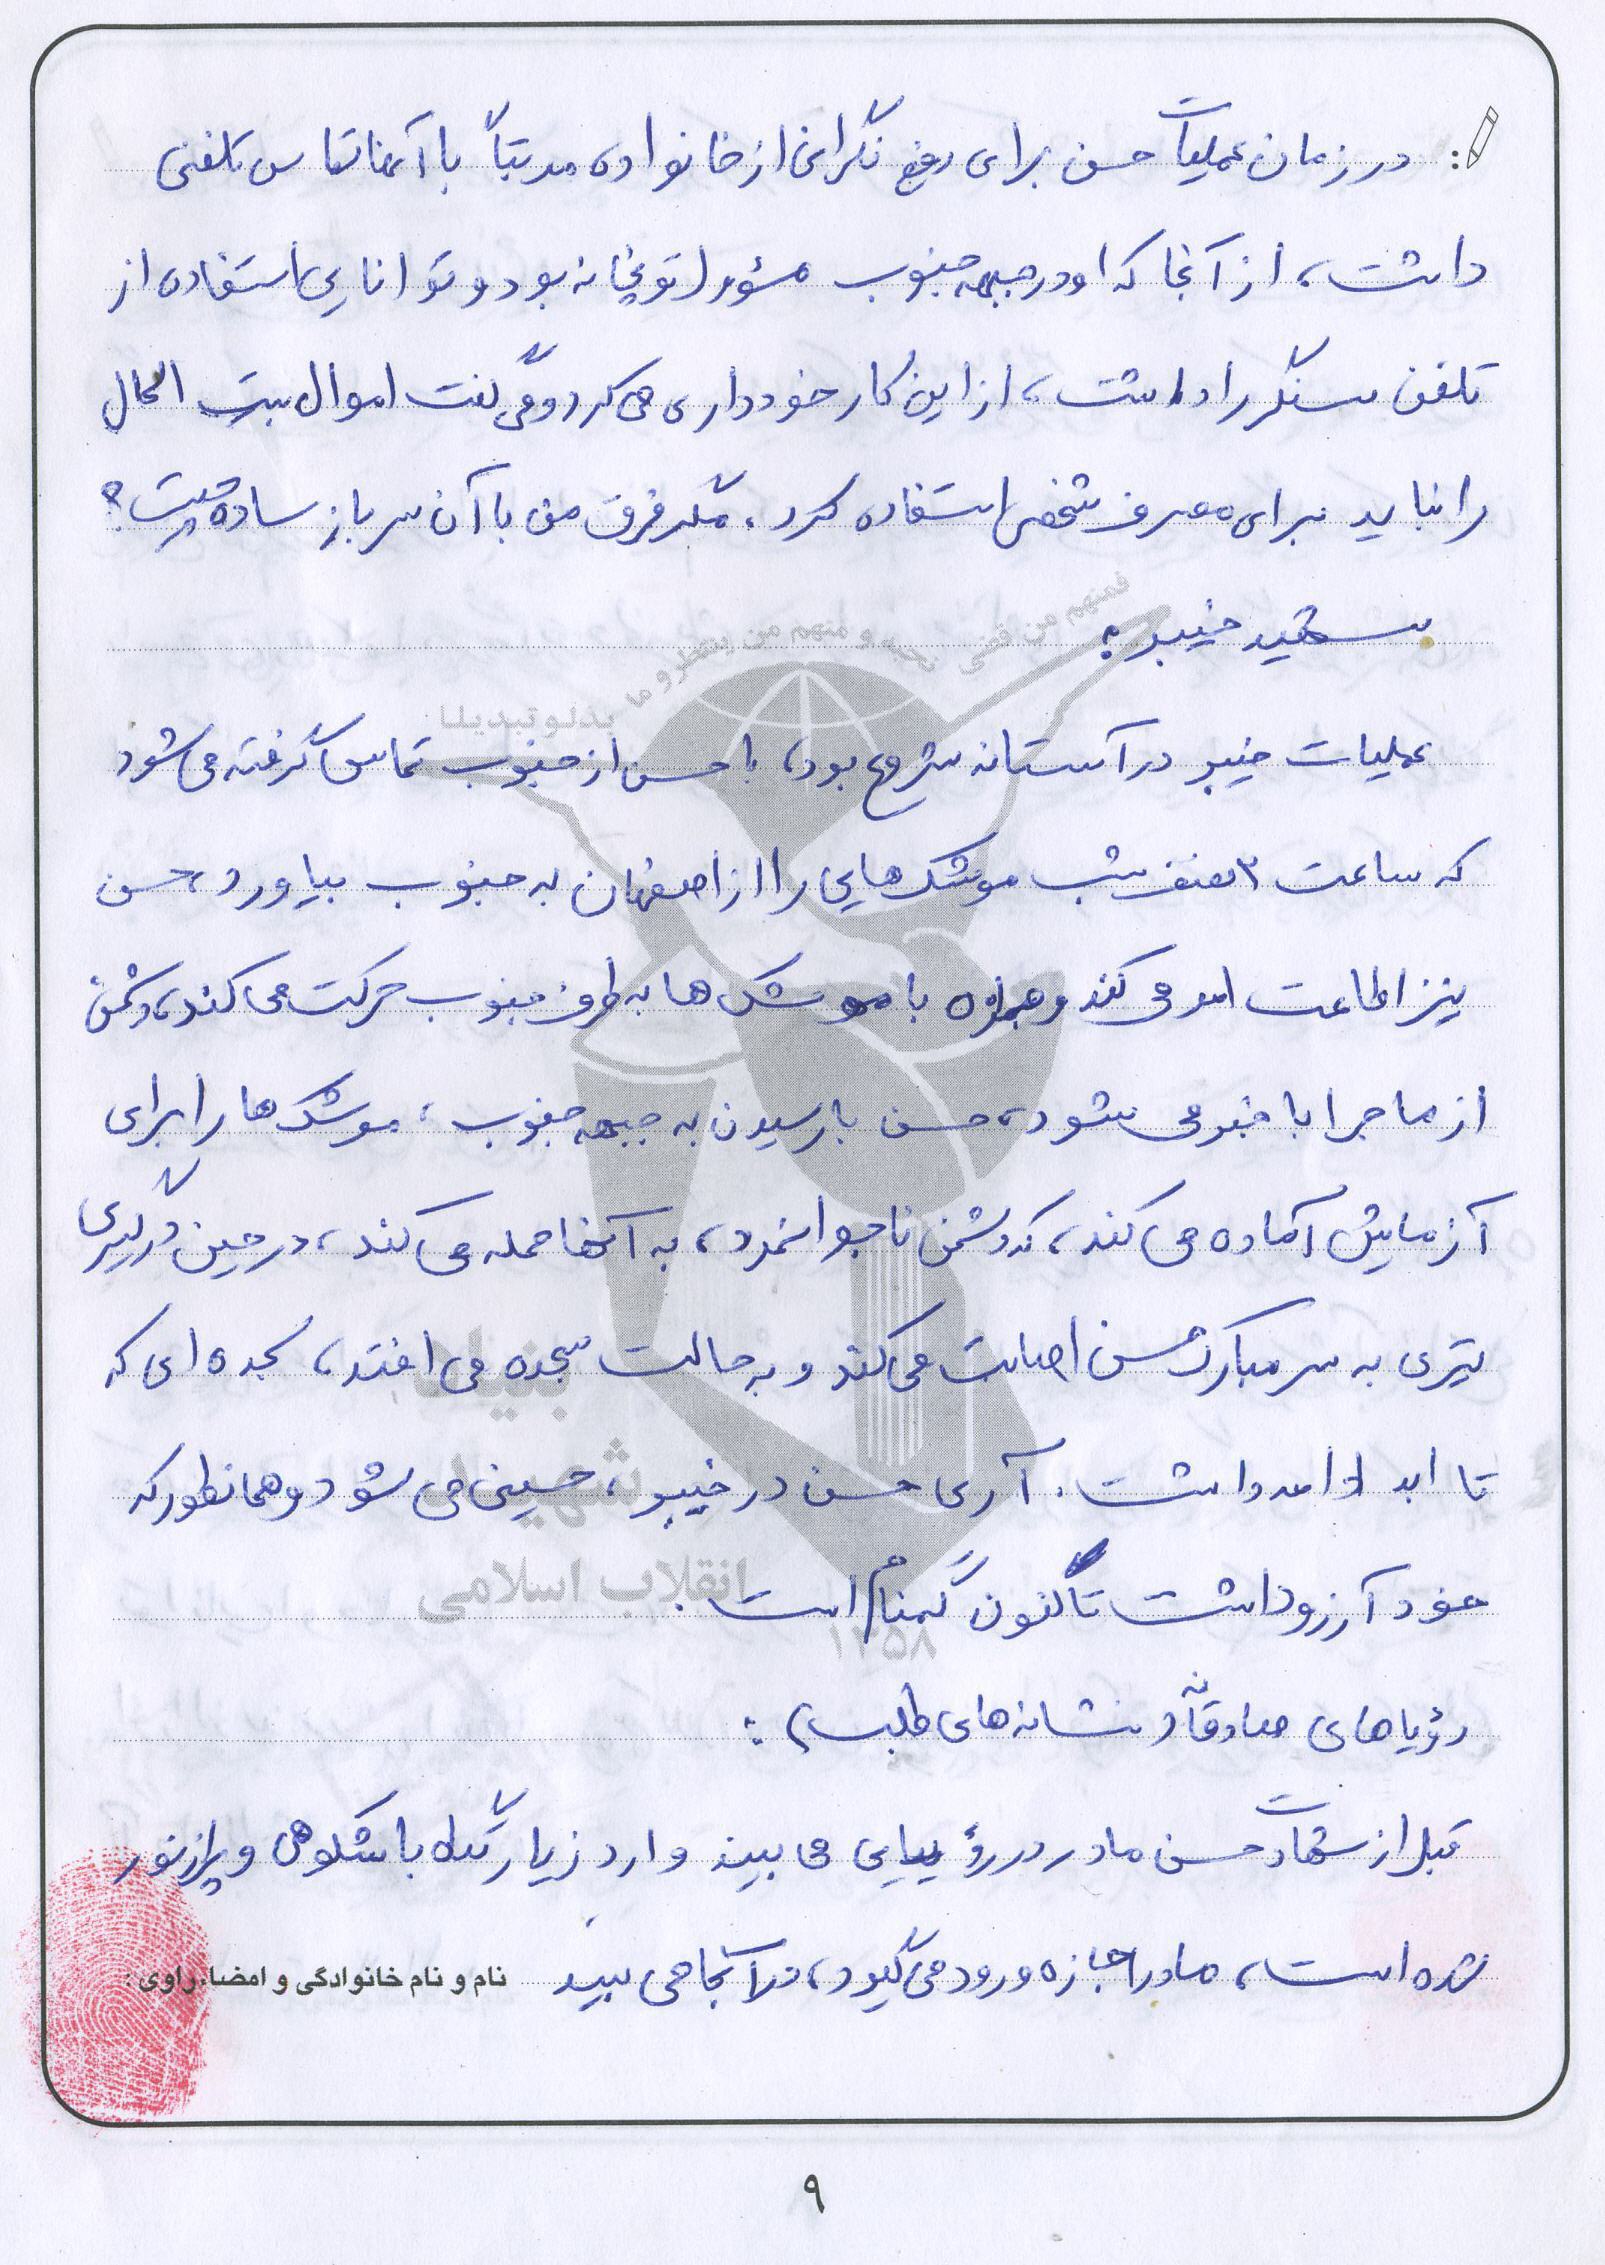 در زمان عملیات حسن برای رفع نگرانی از خانواده مرتباً با آنها تماس تلفنی
داشت، از آنجا که او در جبهه جنوب مسؤول توپخانه بود و توانایی استفاده از
تلفن سنگر را داشت، از این کار خودداری می کرد و می گفت اموال بیت المال
را نباید برای مصرف شخصی استفاده کرد. مگر فرق من با آن سرباز ساده چیست؟
شهید خیبر:
عملیات خیبر در آستانه شروع بود، با حسن از جنوب تماس گرفته می شود
که ساعت ۳ نصف شب موشک هایی را از اصفهان به جنوب بیاورد، حسن
نیز اطاعت امر می کند و همراه با موشک ها به طرف جنوب حرکت می کند، دشمن
از ماجرا با خبر می شود، حسن با رسیدن به جبهه جنوب، موشک ها را برای
آزمایش آماده می کند، که دشمن ناجوانمرد، به آنها حمله می کند، در حین درگیری
تیری به سر مبارک حسن اصابت می کند و به حالت سجده می افتد، سجده ای که
تا ابد ادامه داشت. آری حسن در خیبر، حسینی می شود و همانطور که
خود آرزو داشت تاکنون گمنام است.
رؤیاهای صادقانه و نشانه های طلب :
قبل از شهادت حسن مادر در رؤیایی می بیند وارد زیارتگاه باشکوهی و پر از نور
شده است، مادر اجازه ورود می گیرد، در آنجا می بیند
نام و نام خانوادگی و امضاء راوی :
بنیاد
شهید
انقلاب اسلامی
۱۳۵۸
۹